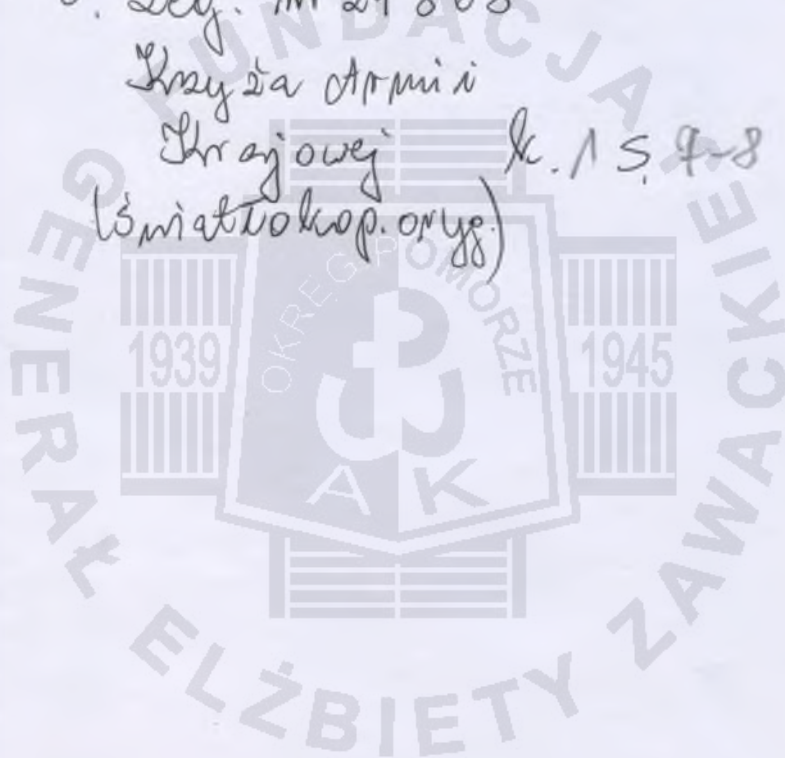 Leg. nr 21 803
Krzyża Armii
Krajowej k. 1 S. 7-8
(światłokop. oryg.)
FUNDACJA
GENERAŁ ELŻBIETY ZAWACKIEJ
OKRĘG POMORZE
1939 1945
AK